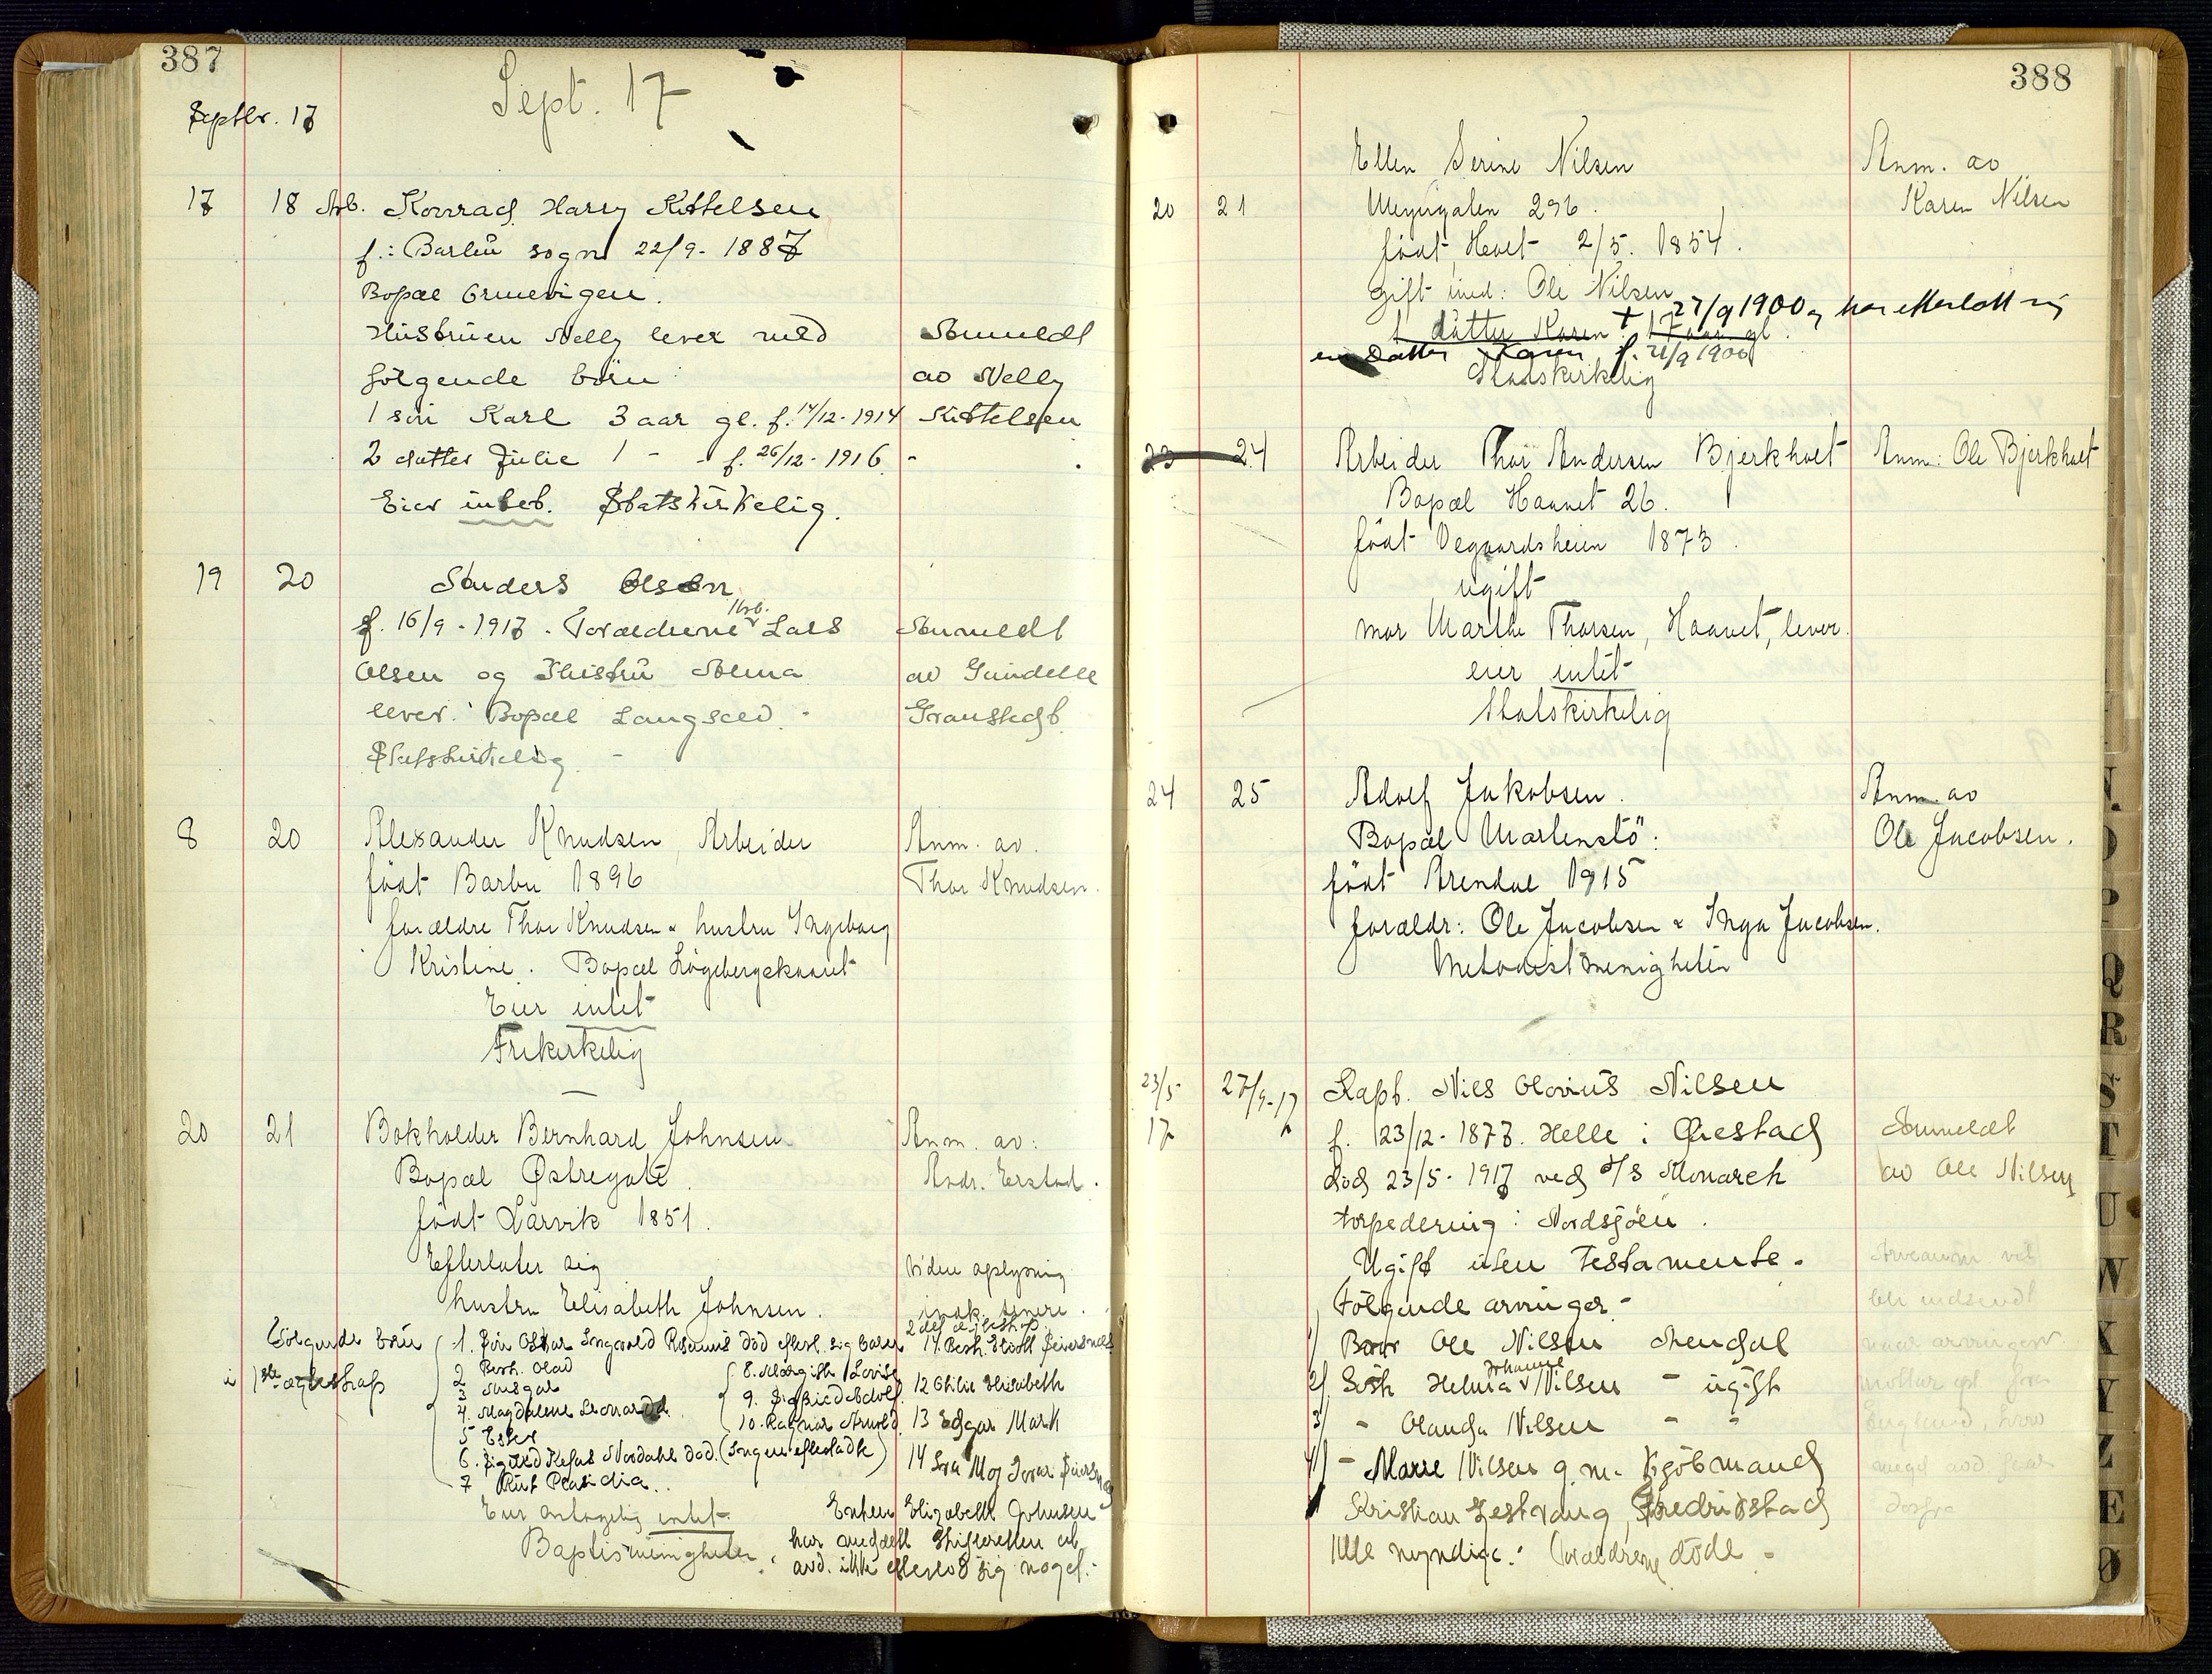 387
Septbr. 17
Sept. 17
17 18 Arb. Konrad Harry Kittelsen
f.: Barbu sogn 22/9 - 1887
Bopæl Grmevigen.
Hustruen Nelly lever med
følgende børn:
1 søn Karl 3 aar gl. f. 14/12 - 1914
2 datter Julie 1 - - f. 26/12 - 1916
Eier intet. Statskirkelig.
Anmeldt
av Nelly
Kittelsen
19 20 Anders Olsen
f. 16/9 - 1917. Forældrene Arb. Lars
Olsen og Hustru Alma
lever. Bopæl Langsæd.
Statskirkelig
Anmeldt
av Gundelle
Granstedt
8 20 Alexander Knudsen, Arbeider
født Barbu 1896
forældre Thor Knudsen & hustru Ingeborg
Kristine. Bopæl Løgebergskaaret
Eier intet
Frikirkelig
Anm. av.
Thor Knudsen.
20 21 Bokholder Bernhard Johnsen
Bopæl Østregate.
født Larvik 1851.
Efterlater sig
hustru Elisabeth Johnsen.
Anm. av:
Andr. Erstad.
Viden oplysning
indk. senere.
Følgende børn
i 1ste ægteskap
1. Søn Oskar Ingvald død efterl. sig barn
2 Bernh. Olad
3 Ansgar
4. Magdalene Leonarda
5 Ester
6. Sigurd Kefas Nordahl død. (Ingen efterladte)
7 Rut Plasidia.
8. Margith Lovise
9. Sigfried Adolf
10. Ragnar Arnold
2det ægtesk.
11. Bernh. Elliott
12 Othilie Elisabeth
13 Edgar Mark
14
Eier antagelig intet
Baptismenigheten.
Enken Elizabeth Johnsen
har anmeldt Skifteretten at
avd. ikke efterlod sig noget.
388
Ellen Serine Nilsen
20 21 Meyergaten 296.
født Hevet 2/5. 1854.
Gift med: Ole Nilsen
+ 27/9 1900 & har efterlatt sig
1 datter Karen 17 aar gl.
en datter Karen f. 21/9 1900
Statskirkelig
Anm. av
Karen Nilsen
23 24 Arbeider Thor Andersen Bjerkholt
Bopæl Haavet 26.
født Vegaardsheien 1873.
ugift
mor Marthe Thorsen, Haavet, lever.
eier intet
Statskirkelig
Anm: Ole Bjerkholt
24 25 Adolf Jakobsen.
Bopæl Martenstø:
født Arendal 1915
forældr: Ole Jacobsen & Inga Jacobsen.
Metodistmenigheten
Anm. av
Ole Jacobsen.
23/5 17 27/9-17 Kapt. Nils Olovius Nilsen
f. 23/12 - 1877. Helle i Øiestad
død 23/5 - 1917 ved d/s Monarch
torpedering i Nordsjøen.
Ugift uten Testamente.
Følgende arvinger -
1/ Bror Ole Nilsen Arendal
2/ Søsk Helma Johanne Nilsen - ugift
3/ - Olanda Nilsen - -
4/ - Marie Nilsen g. m. Kjøbmand
Kristian Zestvang, Fredrikstad
Alle myndige. Forældrene døde -
Anmeldt
av Ole Nilsen
bli indsendt
naar arvingene